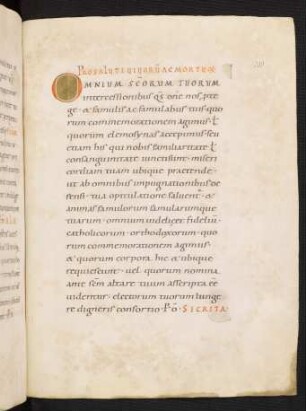 PRO SALUTE UIUORŪ ET MORTUOR̄
OMNIUM SC̄ORUM TUORUM
intercessionibus qs dn̄e nos prote
ge & famulis ac famulabus tuis quo
rum commemorationem agimus ł
quorum elemosynas accepimus seu
etiam his qui nobis familiaritate ł
consanguinitate iuncti sunt miseri
cordiam tuam ubique praetende
ut ab omnibus impugnationibus de
fensi tua opitulatione saluent &
animas famulorum famularumque
tuarum omnium uidelicet fidelium
catholicorum orthodoxorum quo
rum commemorationem agimus
& quorum corpora hic & ubique
requiescunt uel quorum nomina
ante scm altare tuum asscripta ee
uidentur electorum tuorum iunge
re digneris consortio P̄ SECRETA